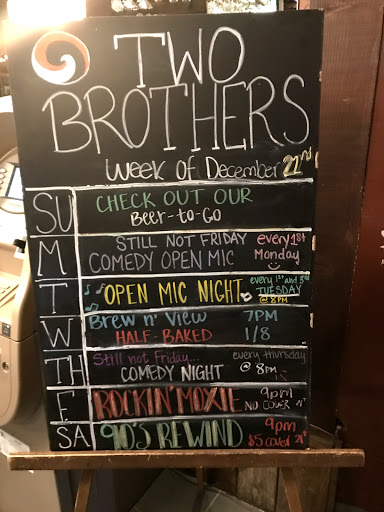 TWO
BROTHERS
Week of December 22nd
SU CHECK OUT OUR
BEER-TO-GO
M STILL NOT FRIDAY every 1st
COMEDY OPEN MIC Monday
T OPEN MIC NIGHT every 1st and 3rd
TUESDAY
@ 8PM
W Brew n' View 7PM
HALF-BAKED 1/8
TH Still not Friday... every thursday
COMEDY NIGHT @ 8PM
F ROCKIN' MOXIE 9pm
NO COVER 21+
SA 90'S REWIND 9pm
$5 cover 21+